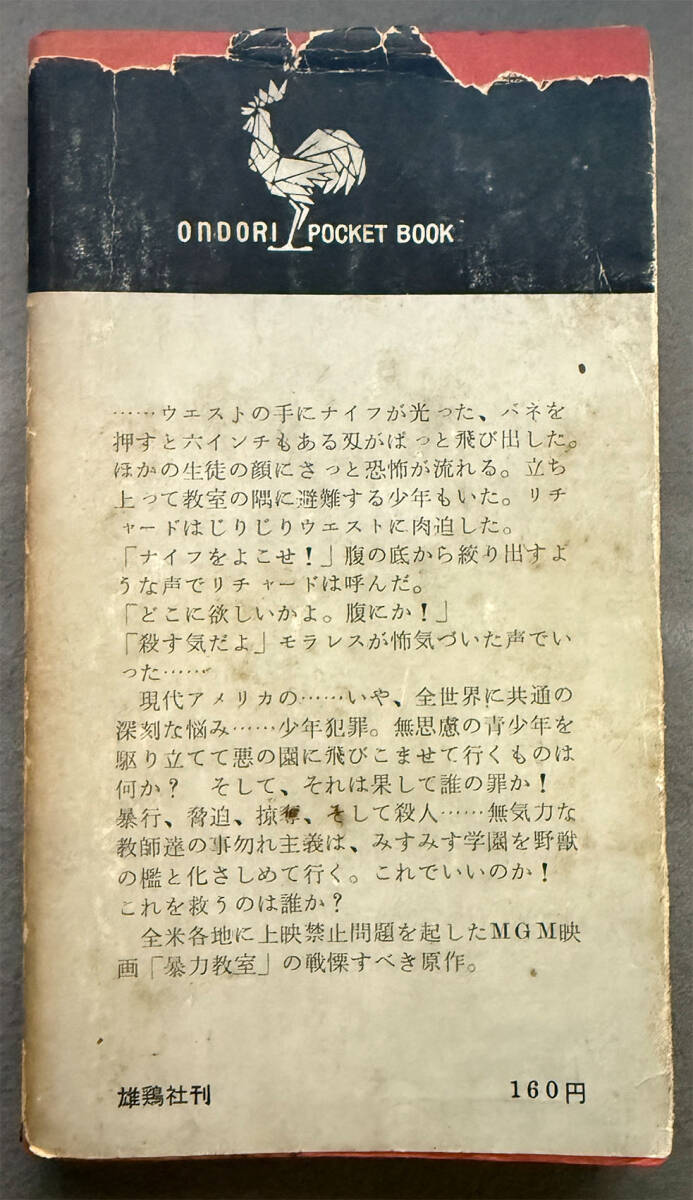 ONDORI POCKET BOOK
……ウエストの手にナイフが光った、バネを
押すと六インチもある刄がぱっと飛び出した。
ほかの生徒の顔にさっと恐怖が流れる。立ち
上って教室の隅に避難する少年もいた。リチ
ャードはじりじりウエストに肉迫した。
「ナイフをよこせ！」腹の底から絞り出すよ
うな声でリチャードは呼んだ。
「どこに欲しいかよ。腹にか！」
「殺す気だよ」モラレスが怖気づいた声でい
った……
現代アメリカの……いや、全世界に共通の
深刻な悩み……少年犯罪。無思慮の青少年を
駆り立てて悪の園に飛びこませて行くものは
何か？　そして、それは果して誰の罪か！
暴行、脅迫、掠奪、そして殺人……無気力な
教師達の事勿れ主義は、みすみす学園を野獣
の檻と化さしめて行く。これでいいのか！
これを救うのは誰か？
全米各地に上映禁止問題を起したMGM映
画「暴力教室」の戦慄すべき原作。
雄鶏社刊
160円